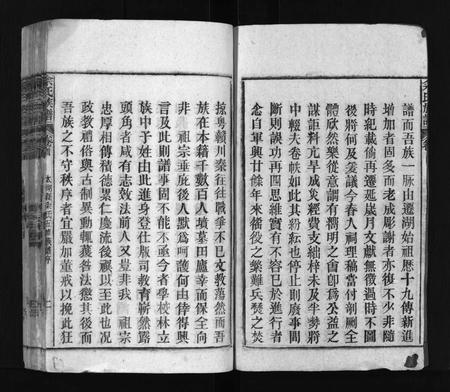 譜而吾族一脈由遷湖始祖應十九傳新進
增加者固多而老成彫謝者亦復不少非隨
時紀載倘再遷延歲月文獻無徵過時不圖
後將何及爰議今春人祠理稿當付剞劂全
體欣然樂從意謂有濶明之酋卽爲公益之
謀詎料亢旱成災經費支絀梓未及半勢將
中輟夫卷帙如此其紛紜也停止則廢事間
斷則誤功再四思維實有不容已於進行者
念自軍興廿餘年來徭役之繁難兵燹之焚
掠粤贛川秦往往戰爭不已文教蕩然而吾
族在本籍千數百人墳墓田廬幸而保全向
非 祖宗垂庇後人默爲呵護何由倖得興
言及此則譜事固不能不亟今者學校林立
族中子姓由此進身登仕版司教育嶄然露
頭角者咸有志效法前人又豈非我 祖宗
忠厚相傳積德累仁慶流後裔以至此也況
政教禮俗與古制異動輒蔑各法懲其後而
吾族之不守秩序者宜嚴加董戒以挽此狂